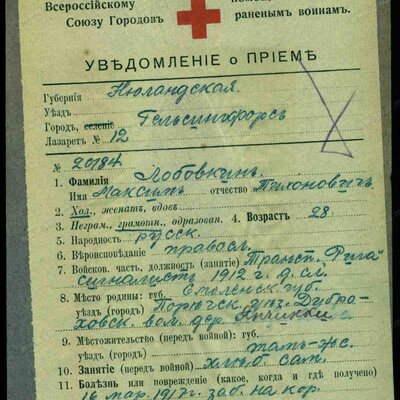 Всероссійскому
Союзу Городовъ
раненымъ воинамъ.
УВѢДОМЛЕНІЕ о ПРІЕМѢ
Губернія Нюландская.
Уѣздъ
Городъ, селеніе Гельсингфорсъ
Лазаретъ № 12
№ 20184
1. Фамилія Лобовкинъ.
Имя Максимъ отчество Тихоновичъ.
2. Хол., женатъ, вдовъ
3. Неграм., грамотн., образован. 4. Возрастъ 28.
5. Народность русск.
6. Вѣроисповѣданіе правосл.
7. Войсков. часть, должность (занятіе) Трансп. Рига
сигналистъ 1912 г. д. сл.
8. Мѣсто родины: губ. Смоленск. губ.
уѣздъ (городъ) Порѣчск. уѣз. Дубра-
ховск. вол. дер.
9. Мѣстожительство (передъ войной): губ.
уѣздъ (городъ) тамъ-же.
10. Занятіе (передъ войной) хлѣб. сам.
11. Болѣзнь или поврежденіе (какое, когда и гдѣ получено)
16 мар. 1917 г. заб. на кор.